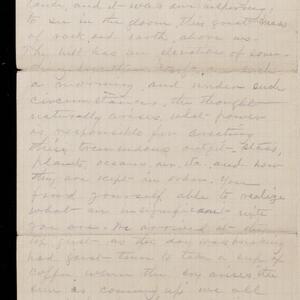 land, and it was
to see in the gloom, this great mass
of rock and earth above us.
The hill has an elevation of some
a morning, and under such
circumstances, the thought
naturally arises, what power
is responsible for creating
these tremendous output - stars,
planets, oceans, etc. and how
they are kept in order. You
find yourself able to realize
what an insignificant
you are. We arrived at the
just as the day was breaking
had just time to take a cup of
coffee, when the cry arises the
sun is coming up, we all